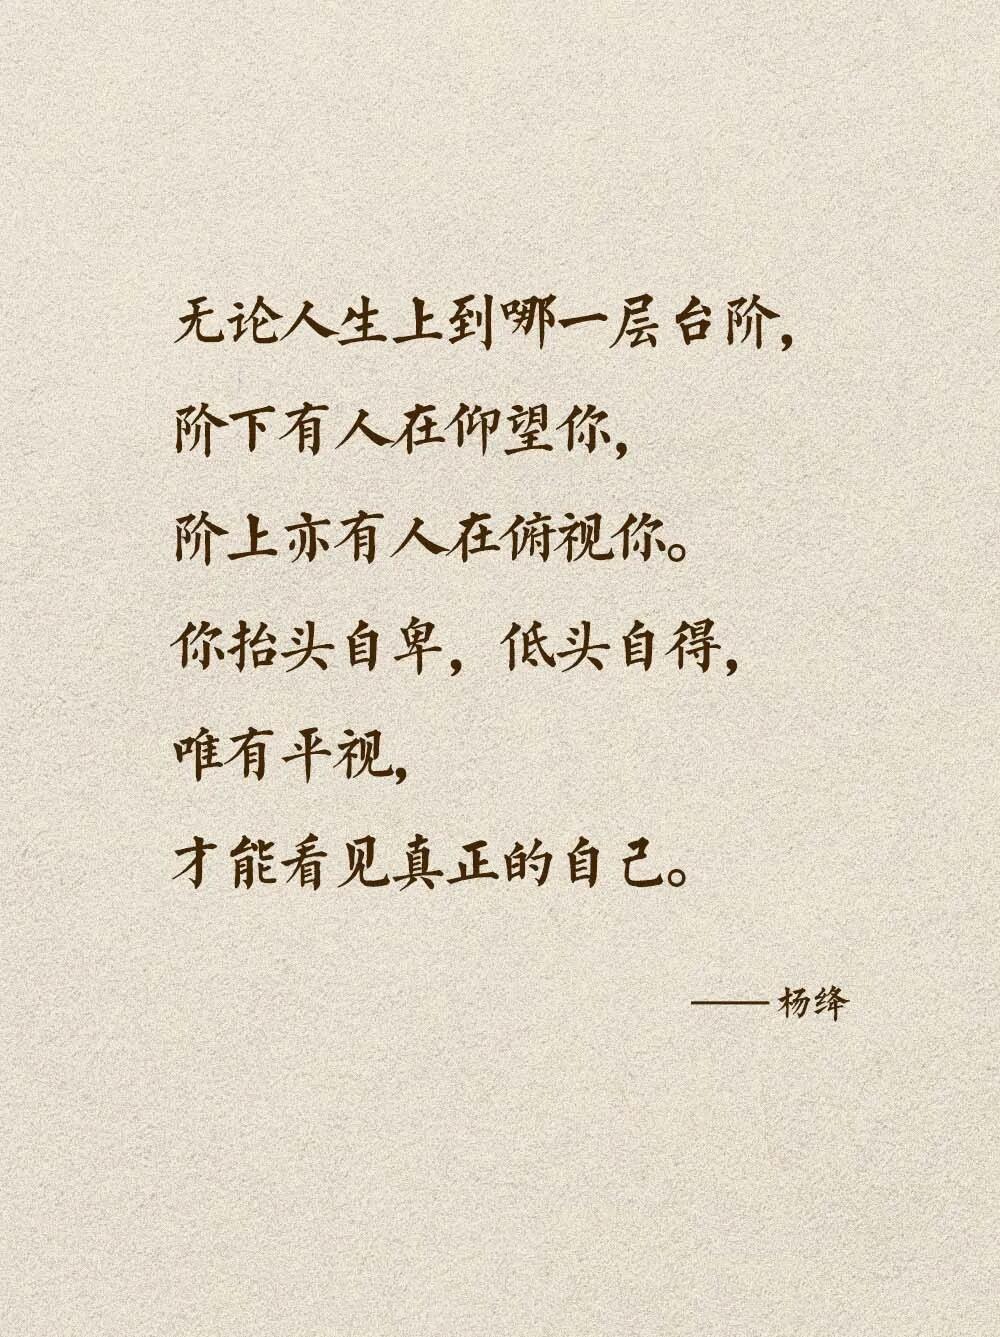 无论人生上到哪一层台阶，
阶下有人在仰望你，
阶上亦有人在俯视你。
你抬头自卑，低头自得，
唯有平视，
才能看见真正的自己。
—— 杨绛